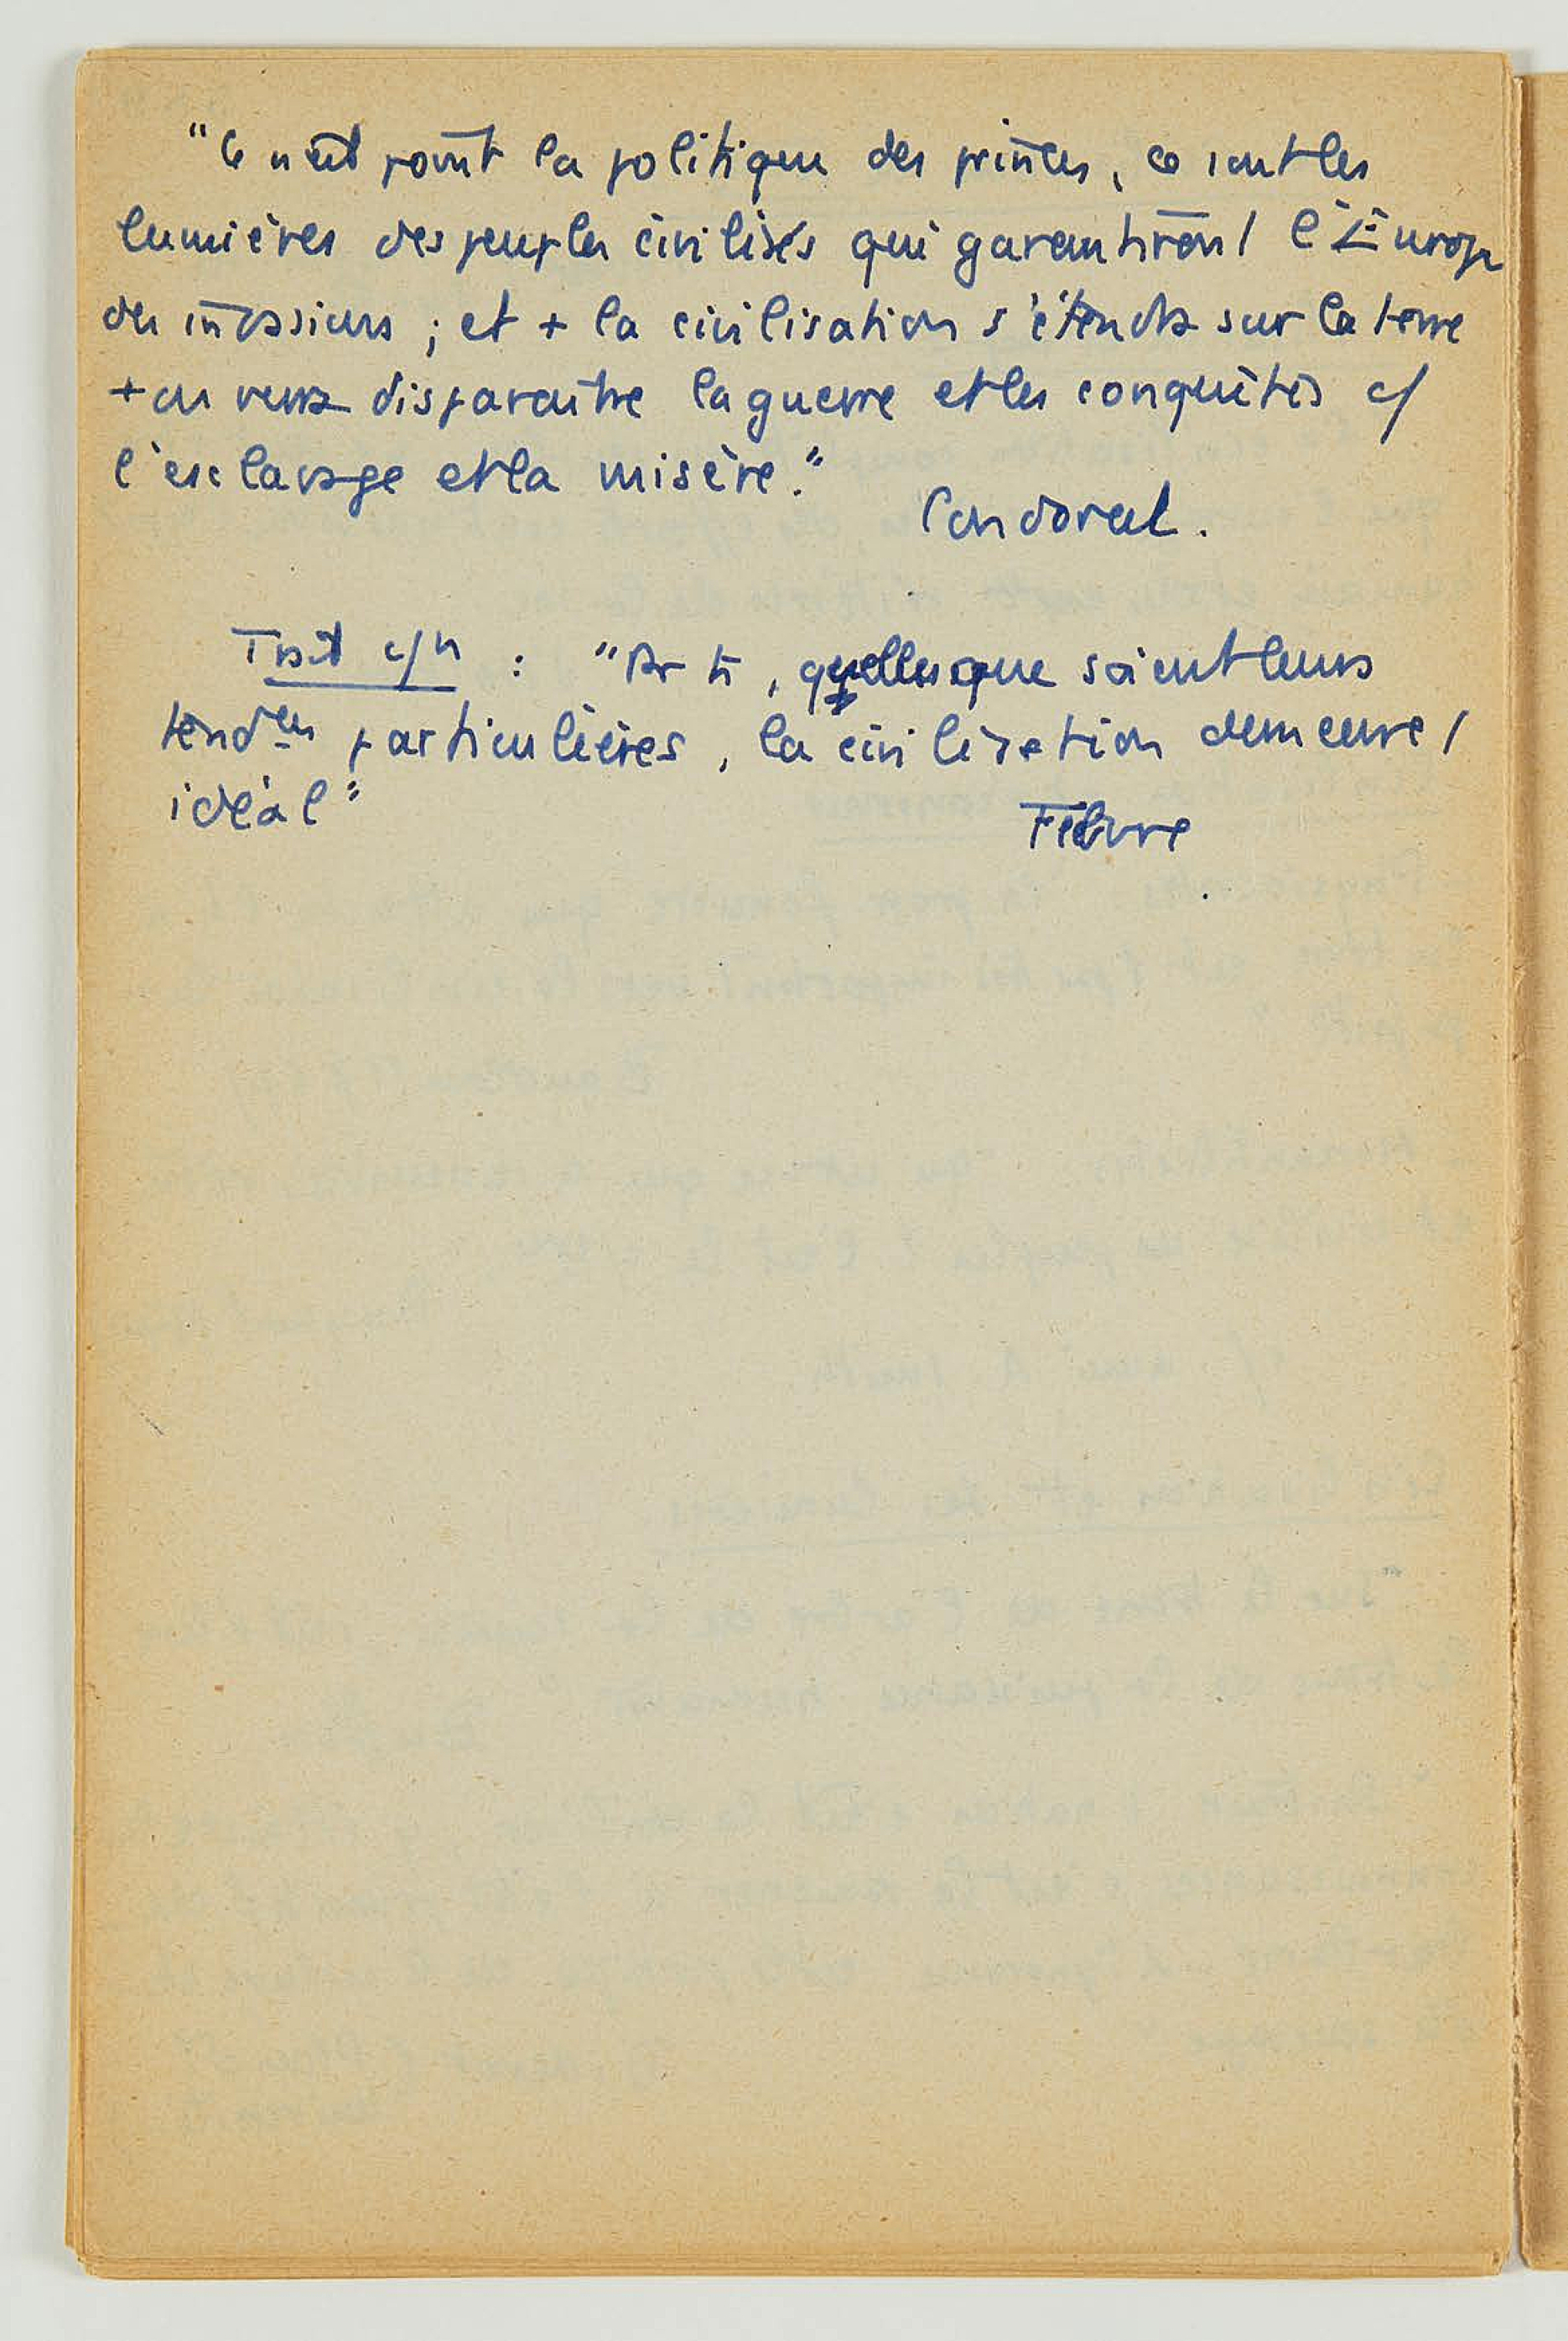 "Ce n'est point la politique des princes, ce sont les
lumières des peuples civilisés qui garantiront l'Europe
des invasions ; et + la civilisation s'étendra sur la terre
+ on verra disparaître la guerre et les conquêtes c/
l'esclavage et la misère."
Condorcet.
c/n : "Pr ts, quelles que soient leurs
tendces particulières, la civilisation demeure /
idéal"
Febvre